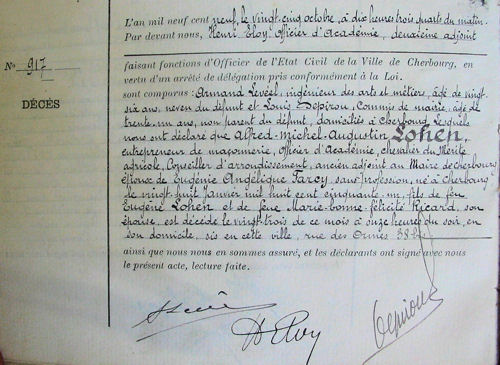 L'an mil neuf cent neuf, le vingt-cinq octobre, à dix heures trois quarts du matin.
Par devant nous, Henri Eloy, Officier d'Académie, deuxième adjoint
faisant fonctions d'Officier de l'Etat Civil de la Ville de Cherbourg, en
vertu d'un arrêté de délégation pris conformément à la Loi.
N° 917
DÉCÈS
sont comparus: Armand Leveel, ingénieur des arts et métiers, âgé de vingt-
six ans, neveu du défunt et Louis Depirou, Commis de mairie, âgé de
trente-un ans, non parent du défunt, domiciliés à Cherbourg, Lesquels
nous ont déclaré que Alfred-Michel-Augustin Lohen
entrepreneur de maçonnerie, Officier d'Académie, chevalier du Mérite
agricole, Conseiller d'arrondissement, ancien adjoint au Maire de Cherbourg
époux de Eugénie Angélique Farcy, sans profession, né à Cherbourg
le vingt-huit Janvier mil huit cent cinquante-un, fils de feu
Eugène Lohen et de feue Marie-bonne-félicité Ricard, son
épouse, est décédé le vingt-trois de ce mois à onze heures du soir, en
son domicile, sis en cette ville, rue des Ormes 38 bis
ainsi que nous nous en sommes assuré, et les déclarants ont signé avec nous
le présent acte, lecture faite.
H Eloy
Depirou